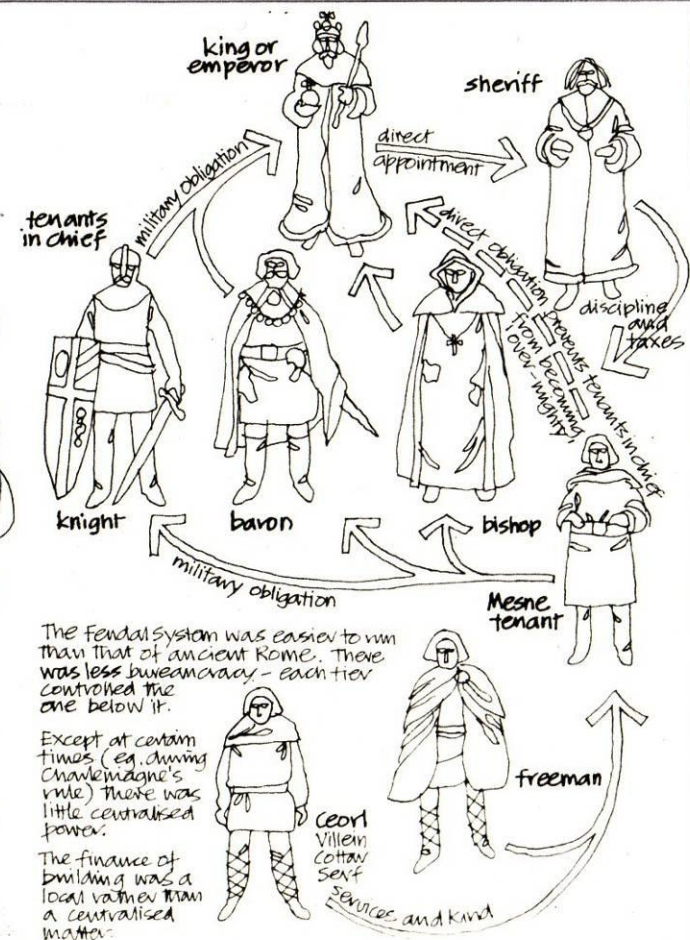 king or
emperor
sheriff
direct
appointment
military obligation
tenants
in chief
direct obligation prevents tenants in chief
from becoming
'over-mighty'
discipline
and
taxes
knight
baron
bishop
military obligation
Mesne
tenant
The Feudal System was easier to run
than that of ancient Rome. There
was less bureaucracy - each tier
controlled the
one below it.
Except at certain
times (eg. during
Charlemagne's
rule) there was
little centralised
power.
The finance of
building was a
local rather than
a centralised
matter.
freeman
Ceorl
Villein
Cottar
Serf
services and kind